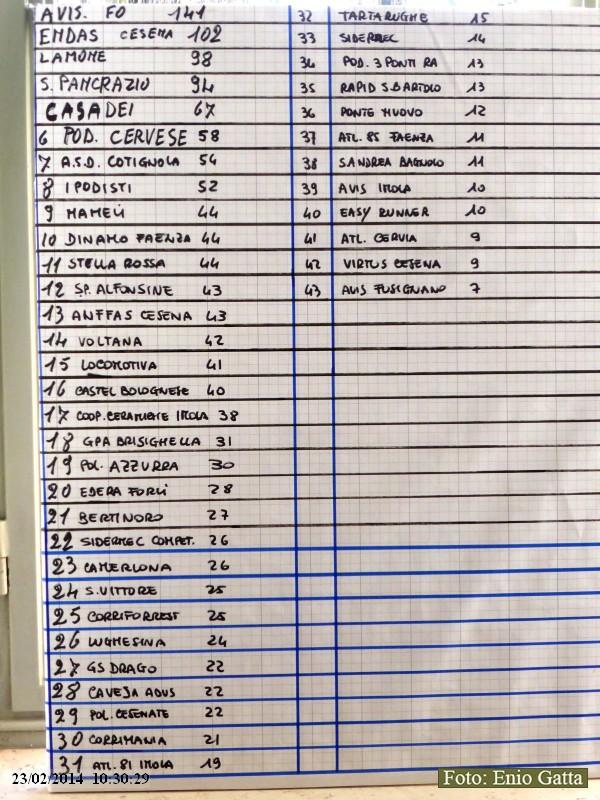 AVIS. FO 141
ENDAS CESENA 102
LAMONE 98
S. PANCRAZIO 94
CASADEI 67
6 POD. CERVESE 58
7 A.S.D. COTIGNOLA 54
8 I PODISTI 52
9 MAMELI 44
10 DINAMO FAENZA 44
11 STELLA ROSSA 44
12 SP. ALFONSINE 43
13 ANFFAS CESENA 43
14 VOLTANA 42
15 LOCOMOTIVA 41
16 CASTEL BOLOGNESE 40
17 COOP. CERAMICHE IMOLA 38
18 GPA BRISIGHELLA 31
19 POL. AZZURRA 30
20 EDERA FORLì 28
21 BERTINORO 27
22 SIDERMEC COMPET. 26
23 CAMERLONA 26
24 S. VITTORE 25
25 CORRIFORREST 25
26 LUGHESINA 24
27 GS DRAGO 22
28 CAVEJA 22
29 POL. CESENATE 22
30 CORRIMANIA 21
31 ATL. 81 IMOLA 19
32 TARTARUGHE 15
33 SIDERMEC 14
34 POD. 3 PONTI RA 13
35 RAPID S. BARTOLO 13
36 PONTE NUOVO 12
37 ATL. 85 FAENZA 11
38 S. ANDREA BAGNOLO 11
39 AVIS IMOLA 10
40 EASY RUNNER 10
41 ATL. CERVIA 9
42 VIRTUS CESENA 9
43 AVIS FUSIGNANO 7
23/02/2014 10:30:29
Foto: Enio Gatta